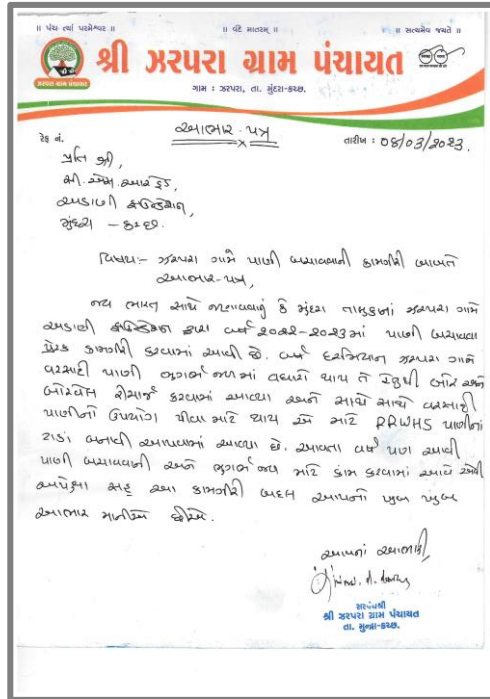 ॥ પંચ ત્યાં પરમેશ્વર ॥ ॥ વંદે માતરમ્ ॥ ॥ સત્યમેવ જયતે ॥
શ્રી ઝરપરા ગ્રામ પંચાયત
ઝરપરા ગ્રામ પંચાયત
ગામ : ઝરપરા, તા. મુંદરા-કચ્છ.
આભાર-પત્ર
રેફ નં. તારીખ : ૦૪/૦૩/૨૦૨૩.
પ્રતિ શ્રી,
સી.એસ.આર હેડ,
અદાણી ફાઉન્ડેશન,
મુંદરા - કચ્છ
વિષય:- ઝરપરા ગામે પાણી બચાવવાની કામગીરી બાબતે
આભાર-પત્ર,
જય ભારત સાથે જણાવવાનું કે મુંદરા તાલુકાનાં ઝરપરા ગામે
અદાણી ફાઉન્ડેશન દ્વારા વર્ષ ૨૦૨૨-૨૦૨૩માં પાણી બચાવવા
પ્રેરક કામગીરી કરવામાં આવી છે. વર્ષ દરમિયાન ઝરપરા ગામે
વરસાદી પાણી ભુગર્ભ જળમાં વધારો થાય તે હેતુથી બોર અને
બોરવેલ રીચાર્જ કરવામાં આવ્યા અને સાથે સાથે વરસાદી
પાણીનો ઉપયોગ પીવા માટે થાય એ માટે RRWHS પાણીનાં
ટાંકા બનાવી આપવામાં આવ્યા છે. આવતા વર્ષે પણ આવી
પાણી બચાવવાની અને ભુગર્ભ જળ માટે કામ કરવામાં આવે એવી
અપેક્ષા સહ આ કામગીરી બદલ આપનો ખુબ ખુબ
આભાર માનીએ છીએ.
આપનાં આભારી,
સરપંચશ્રી
શ્રી ઝરપરા ગ્રામ પંચાયત
તા. મુન્દ્રા-કચ્છ.